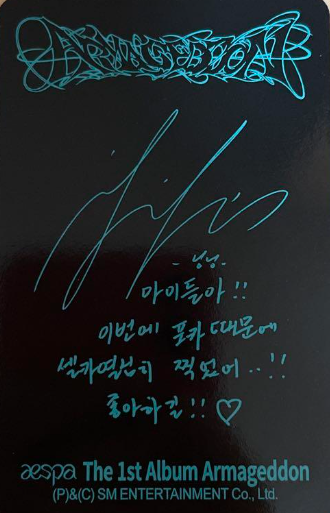 ARMAGEDDON
-닝닝-
마이들아!!
이번에 포카 때문에
셀카 열심히 찍었어..!!
좋아하길!! ♡
aespa The 1st Album Armageddon
(P)&(C) SM ENTERTAINMENT Co., Ltd.